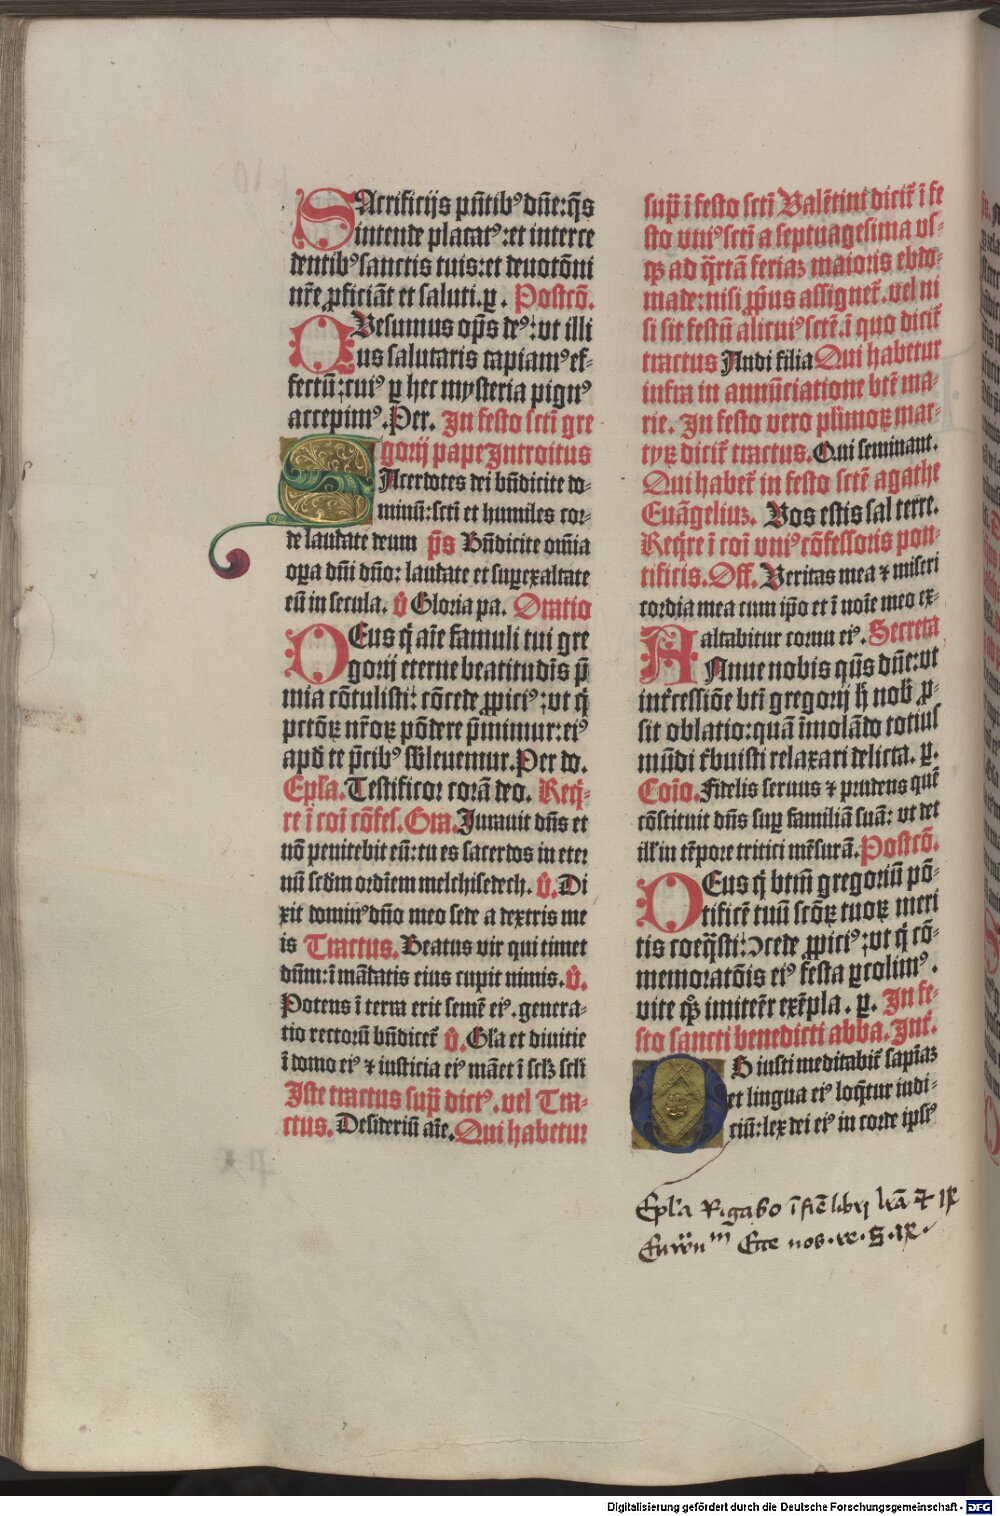 SAcrificijs pn̄tibꝰ dn̄e: q̄s
intende placatꝰ: et interce
dentibꝰ sanctis tuis: et deuotōni
nr̄e ꝓficiāt et saluti. ꝑ. Postcō.
QVesumus op̄s deꝰ: vt illi
us salutaris capiamꝰ ef-
fectū: cuiꝰ ꝑ hec mysteria pignꝰ
accepimꝰ. Per. In festo scti gre
gorij pape Introitus
SAcerdotes dei bn̄dicite do-
minū: scti et humiles cor-
de laudate deum p̄s Bn̄dicite om̄ia
oꝑa dn̄i dn̄o: laudate et suꝑexaltate
eū in secula. v̄ Gloria pa. Oratio
DEus q̄ aīe famuli tui gre
gorij eterne beatitudīs p̄
mia cōtulisti: cōcede ꝓpiciꝰ: vt q̄
pctōꝝ nr̄oꝝ pōdere p̄mimur: eiꝰ
apd̄ te p̄cibꝰ sb̄leuemur. Per do.
Epl̄a. Testificor corā deo. Req̄-
re ī coī cōfes. Gra. Iurauit dn̄s et
nō penitebit eū: tu es sacerdos in eter
nū scd̄m ordīem melchisedech. v̄. Di
xit dominꝰ dn̄o meo sede a dextris me
is Tractus. Beatus vir qui timet
dūm: ī mādatis eius cupit nimis. v̄.
Potens ī terra erit semē eiꝰ. genera-
tio rectorū bn̄dicet̄ v̄. Gl̄a et diuitie
ī domo eiꝰ ⁊ iusticia eiꝰ manet ī scl̄ꝫ scl̄i
Iste tractus sup̄ dictꝰ. vel Tra-
ctus. Desideriū aīe. Qui habetur
sup̄ ī festo scti Valētini dicit̄ ī fe
sto vniꝰ scti a septuagesima vs-
qꝫ ad q̄rtā feriaꝫ maioris ebdo-
made: nisi ꝓp̄us assignet̄. vel ni
si sit festū alicuiꝰ sctē. ī quo dicit̄
tractus Audi filia Qui habetur
infra in annūciatione btē ma-
rie. In festo vero plīmoꝝ mar-
tyꝝ dicit̄ tractus. Qui seminant.
Qui habet̄ in festo sctē agathe
Euāgeliuꝫ. Vos estis sal terre.
Req̄re ī coī vniꝰ cōfessoris pon-
tificis. Off. Veritas mea ⁊ miseri
cordia mea cum ip̄o et ī noīe meo ex-
altabitur cornu eiꝰ. Secreta
ANnue nobis q̄us dn̄e: vt
int̄cessiōe bti gregorij h̄ nob̄ ꝓ-
sit oblatio: quā īmolādo totius
mūdi t̄buisti relaxari delicta. ꝑ.
Coīo. Fidelis seruus ⁊ prudens quē
cōstituit dn̄s suꝑ familiā suā: vt det
ill̄ in tēpore tritici mēsurā. Postcō.
DEus q̄ btm̄ gregoriū pō-
tificē tuū scōꝝ tuoꝝ meri
tis coeq̄sti: ↄcede ꝓpiciꝰ: vt q̄ cō-
memoratōis eiꝰ festa ꝑcolimꝰ.
vite qꝫ imitem̄r exēpla. ꝑ. In fe-
sto sancti benedicti abba. Int̄.
OS iusti meditabit̄ sapiaꝫ
et lingua eiꝰ loq̄tur iudi-
ciū: lex dei eiꝰ in corde ipsiꝰ
Digitalisierung gefördert durch die Deutsche Forschungsgemeinschaft - DFG